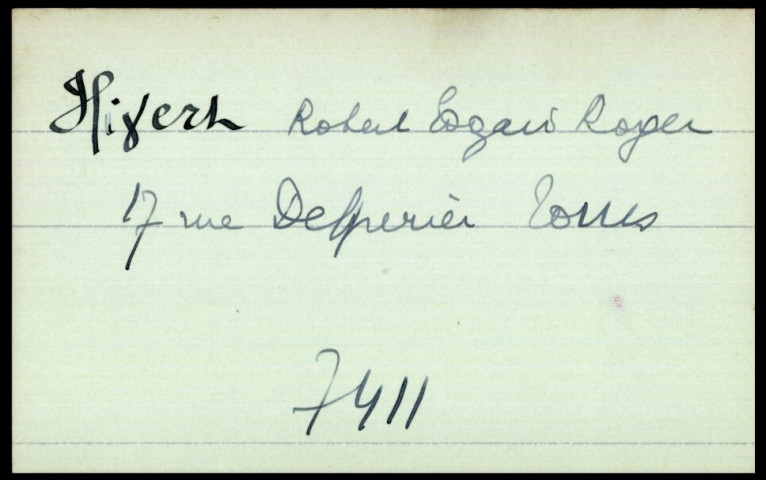 Hivert Robert Edgard Roger
17 rue Delperier Tours
7411